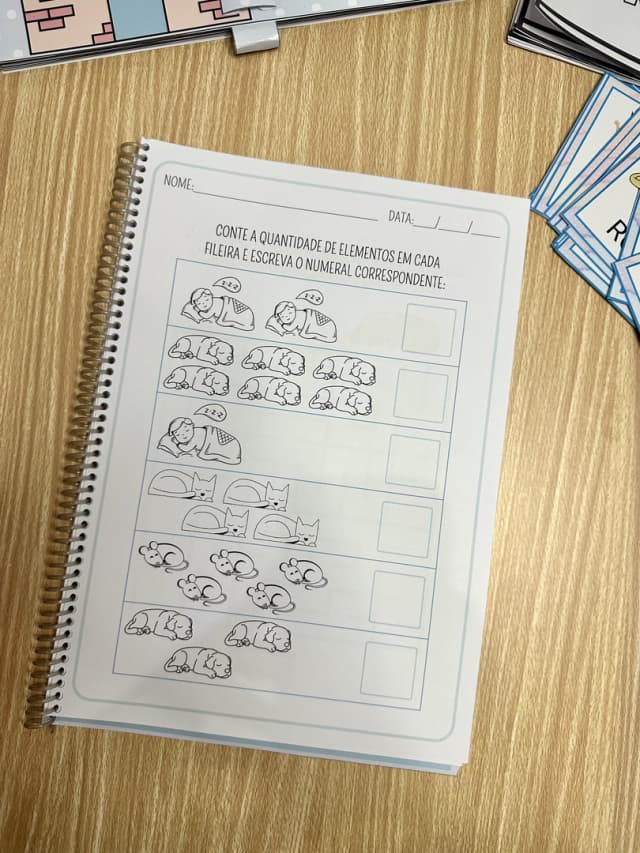 NOME:
DATA: / /
CONTE A QUANTIDADE DE ELEMENTOS EM CADA
FILEIRA E ESCREVA O NUMERAL CORRESPONDENTE:
z-z-z
z-z-z
z-z-z
R